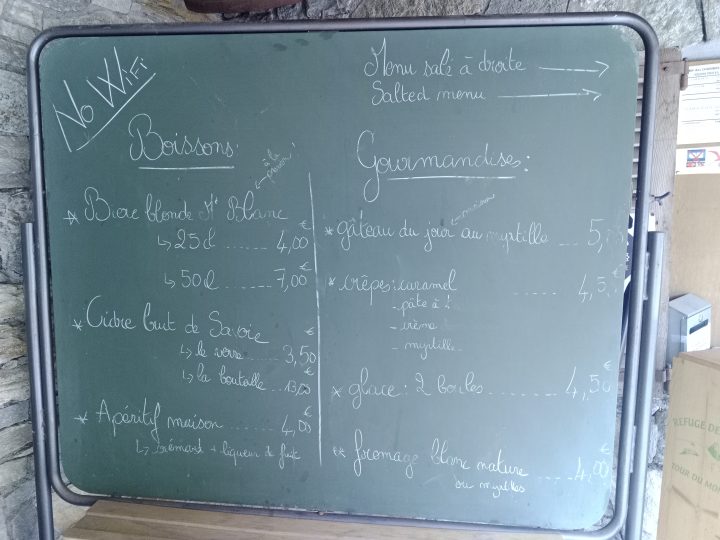 No WiFi
Menu salé à droite
Salted menu
Boissons:
à la pression
Bière blonde Mt Blanc
25cl ...... 4,00 €
50cl ...... 7,00 €
Cidre brut de Savoie
le verre ...... 3,50 €
la bouteille ... 13,50 €
Apéritif maison ...... 4,00 €
crémant + liqueur de fruit
Gourmandises:
maison
gâteau du jour au myrtille ... 5,
crêpes: caramel ...... 4,5
pâte à
crème
myrtille
glace: 2 boules ........ 4,50 €
fromage blanc nature ...... 4,00 €
ou myrtilles
REFUGE DE
TOUR DU MO